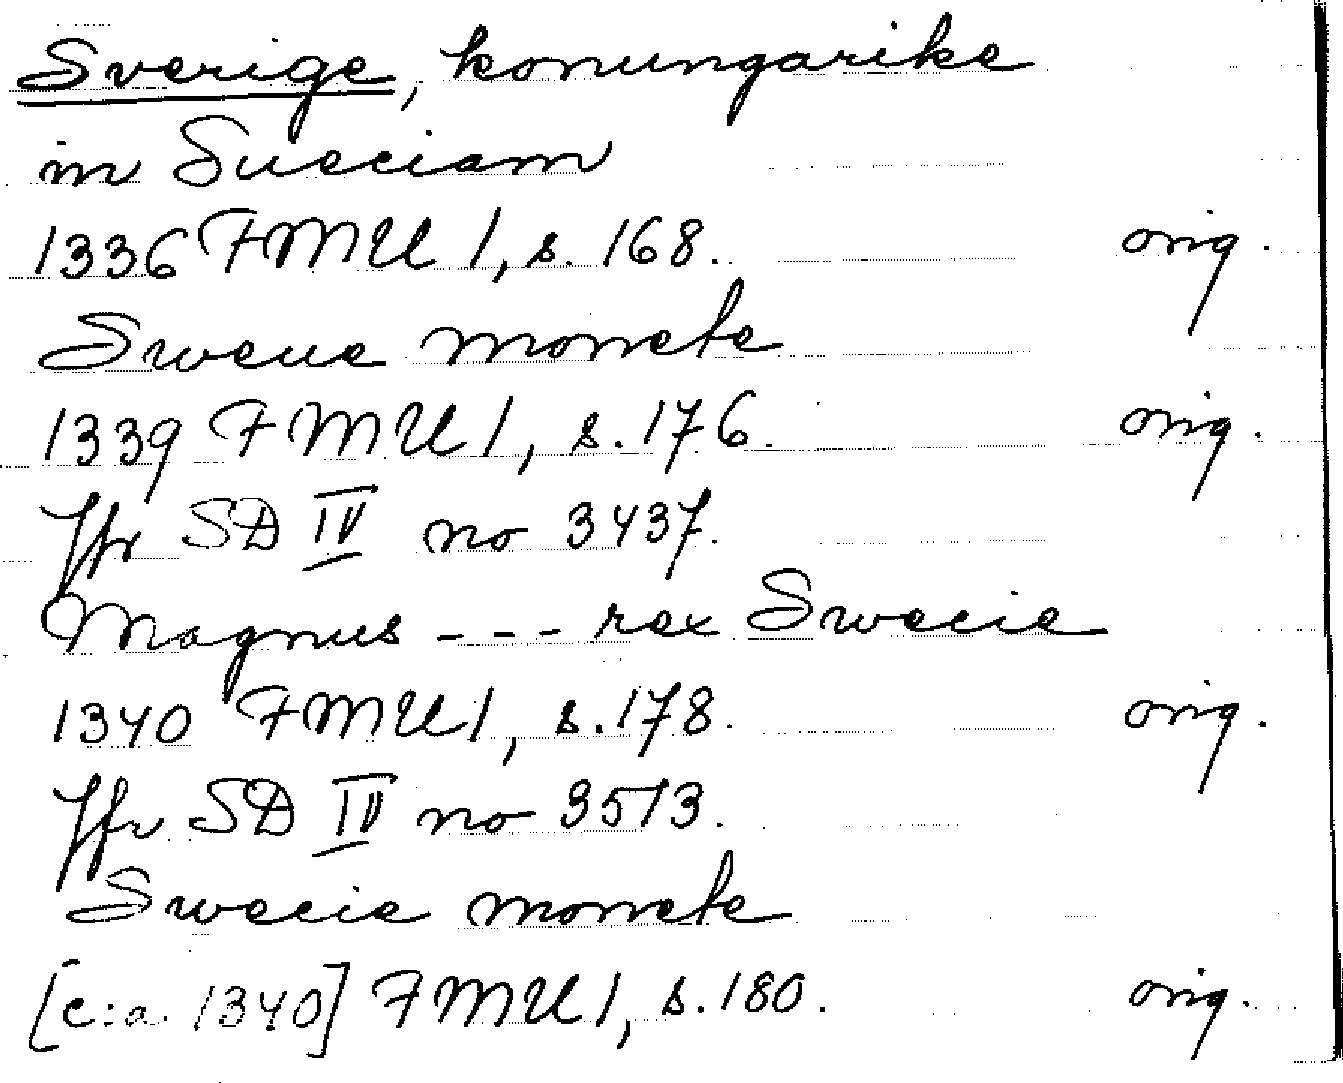 Sverige, konungarike
in Sueciam
1336 FMU 1, s. 168. orig.
Sweue monete
1339 FMU 1, s. 176. orig.
Jfr SD IV no 3437.
Magnus --- rex Swecie
1340 FMU 1, s. 178. orig.
Jfr SD IV no 3513.
Swecie monete
[c:a. 1340] FMU 1, s. 180. orig.